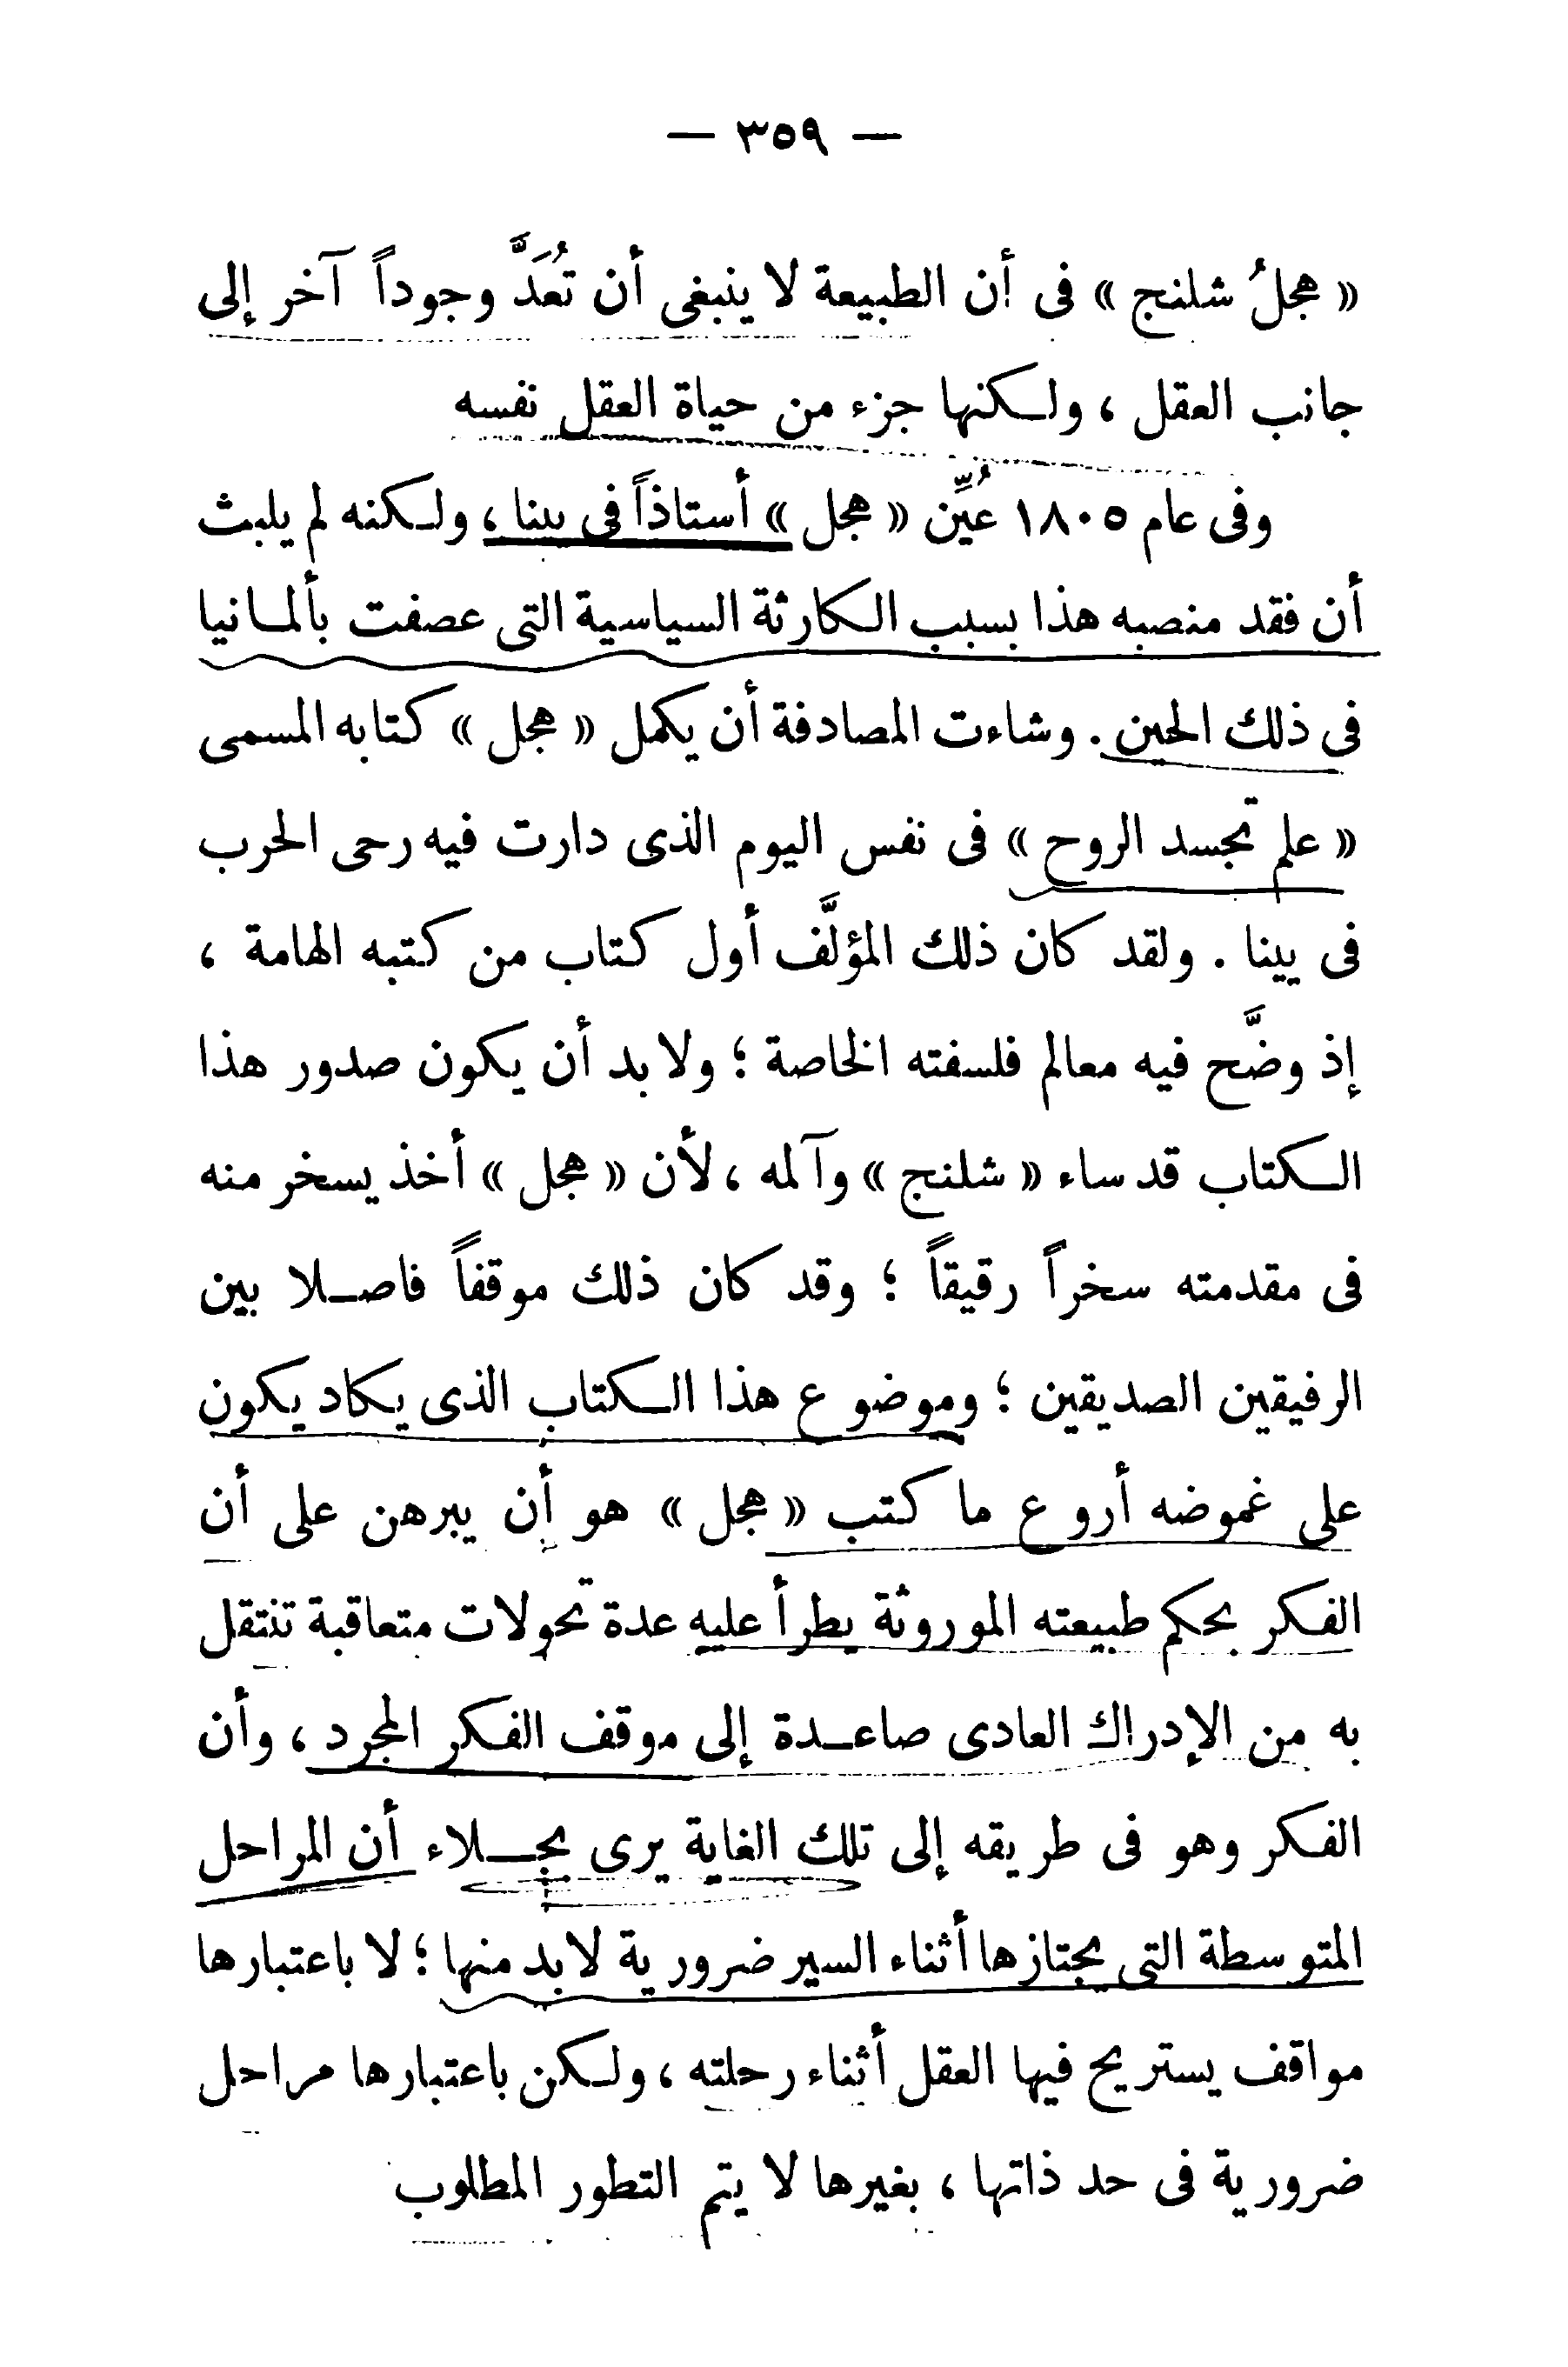 — ٣٥٩ —
« هجلُ شلنج » فى أن الطبيعة لا ينبغى أن تُعَدَّ وجوداً آخر إلى
جانب العقل ، ولكنها جزء من حياة العقل نفسه
وفى عام ١٨٠٥ عُيِّن « هجل » أستاذاً فى يينا ، ولكنه لم يلبث
أن فقد منصبه هذا بسبب الكارثة السياسية التى عصفت بألمانيا
فى ذلك الحين . وشاءت المصادفة أن يكمل « هجل » كتابه المسمى
« علم تجسد الروح » فى نفس اليوم الذى دارت فيه رحى الحرب
فى يينا . ولقد كان ذلك المؤلَّف أول كتاب من كتبه الهامة ،
إذ وضَّح فيه معالم فلسفته الخاصة ؛ ولابد أن يكون صدور هذا
الكتاب قد ساء « شلنج » وآلمه ، لأن « هجل » أخذ يسخر منه
فى مقدمته سخراً رقيقاً ؛ وقد كان ذلك موقفاً فاصلا بين
الرفيقين الصديقين ؛ وموضوع هذا الكتاب الذى يكاد يكون
على غموضه أروع ما كتب « هجل » هو أن يبرهن على أن
الفكر بحكم طبيعته الموروثة يطرأ عليه عدة تحولات متعاقبة تنتقل
به من الإدراك العادى صاعدة إلى موقف الفكر المجرد ، وأن
الفكر وهو فى طريقه إلى تلك الغاية يرى بجلاء أن المراحل
المتوسطة التى يجتازها أثناء السير ضرورية لابد منها ؛ لا باعتبارها
مواقف يستريح فيها العقل أثناء رحلته ، ولكن باعتبارها مراحل
ضرورية فى حد ذاتها ، بغيرها لا يتم التطور المطلوب